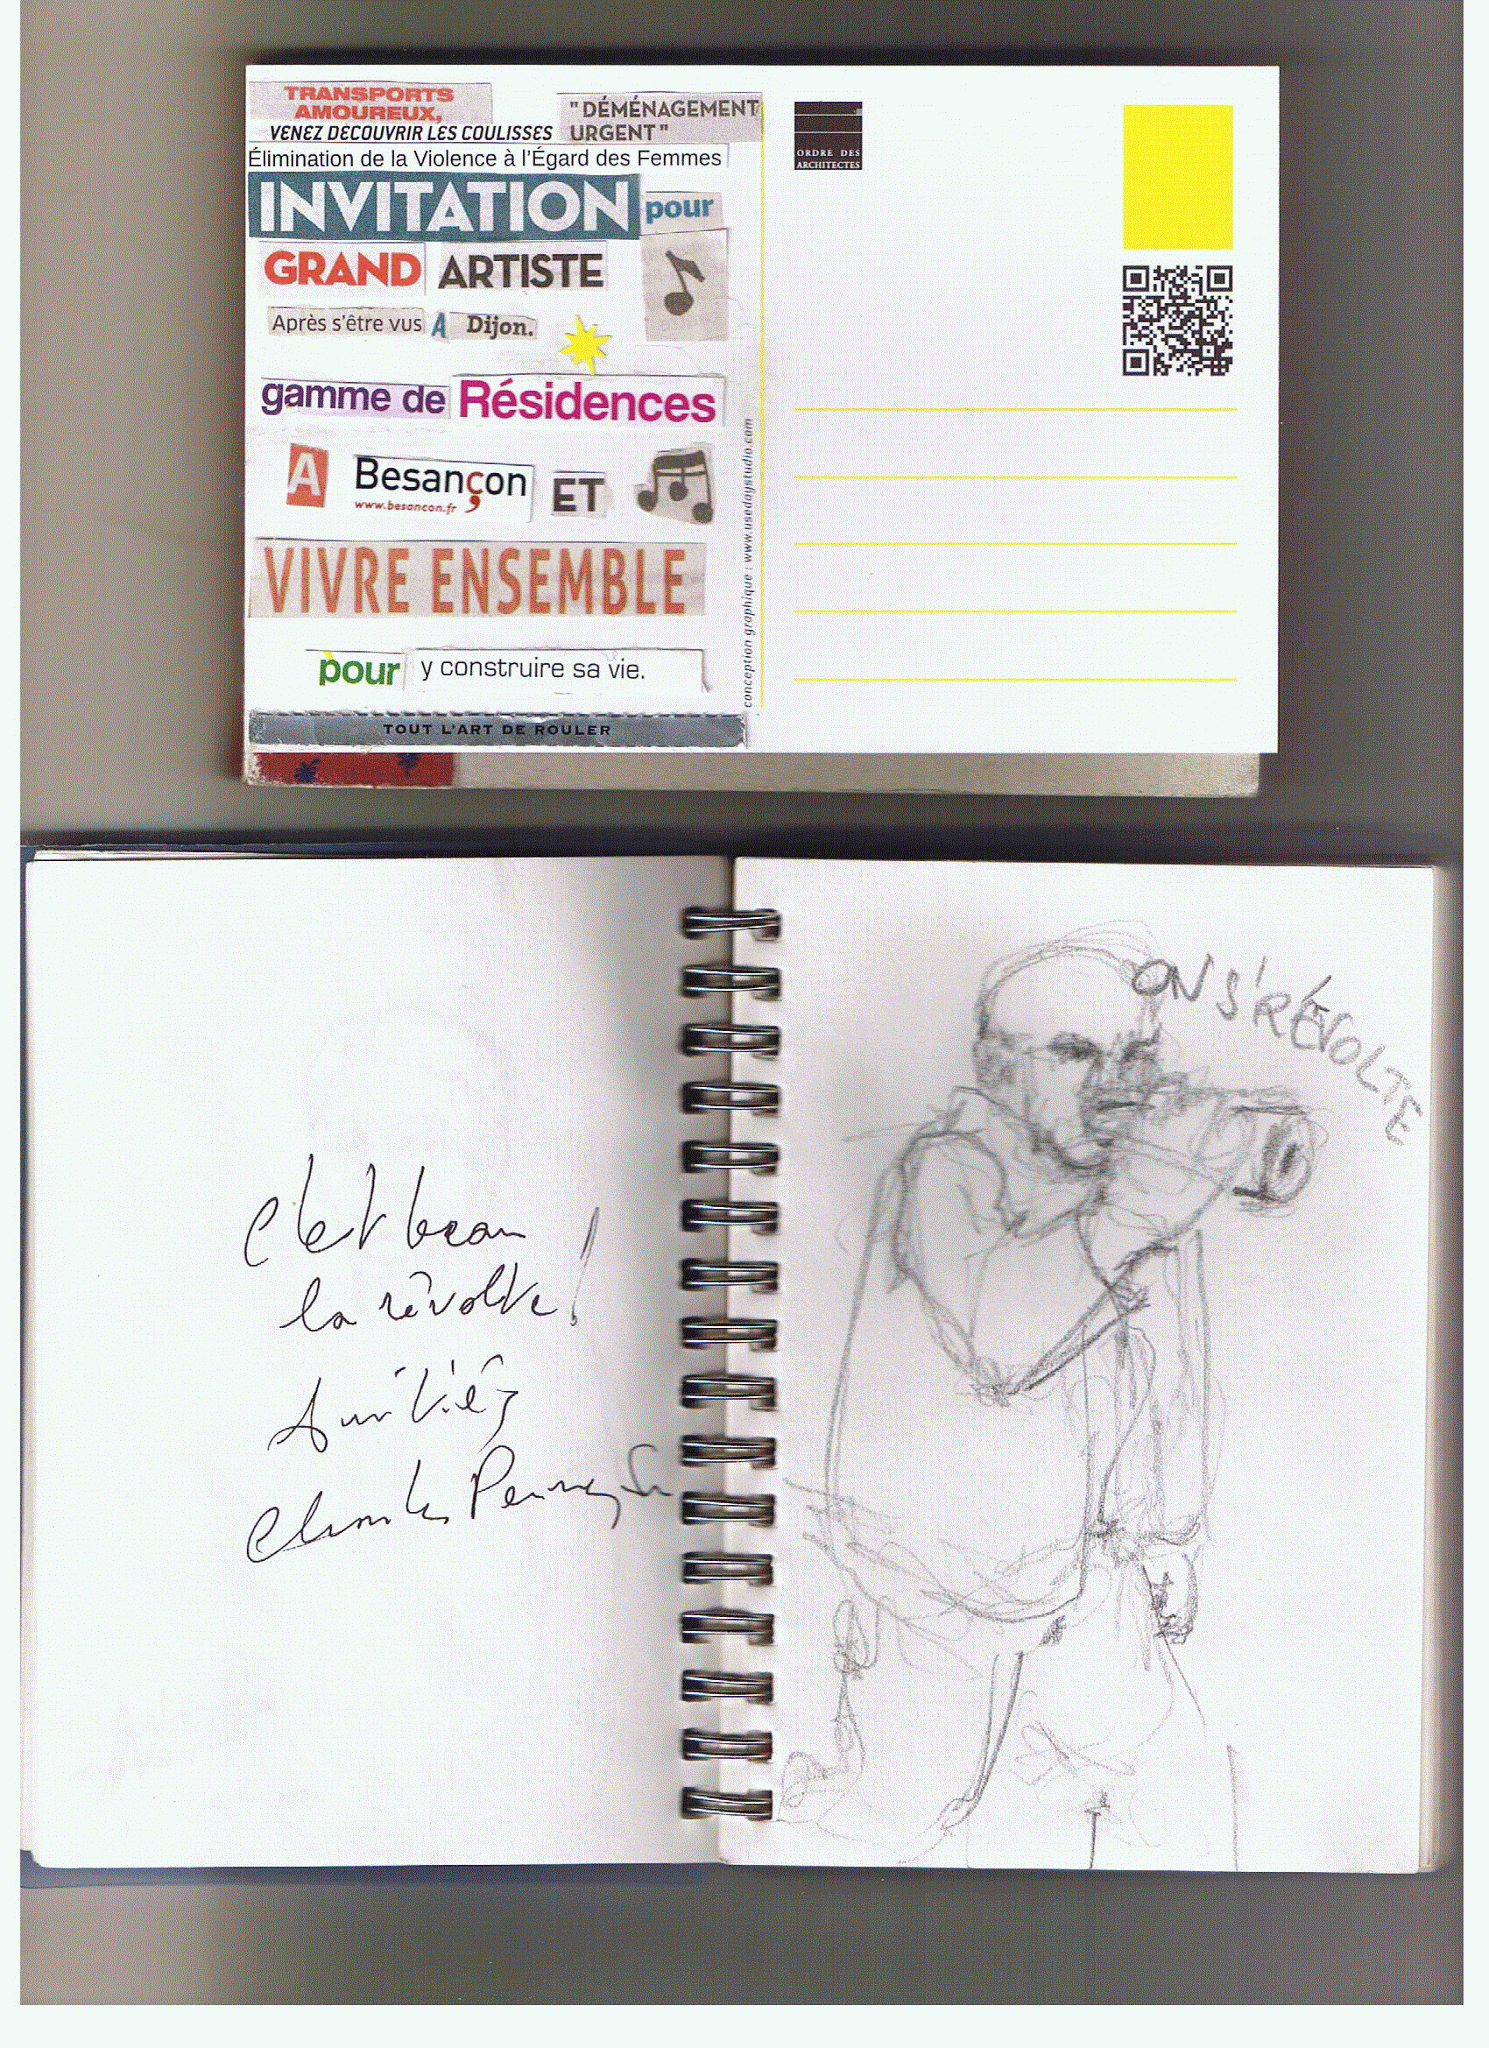 TRANSPORTS
AMOUREUX,
"DÉMÉNAGEMENT
URGENT"
VENEZ DECOUVRIR LES COULISSES
Élimination de la Violence à l'Égard des Femmes
INVITATION pour
GRAND ARTISTE
Après s'être vus A Dijon.
gamme de Résidences
A Besançon ET
www.besancon.fr
VIVRE ENSEMBLE
pour y construire sa vie.
TOUT L'ART DE ROULER
conception graphique : www.usedaystudio.com
ORDRE DES
ARCHITECTES
C'est beau
la révolte !
Amitiés
ON S'RÉVOLTE